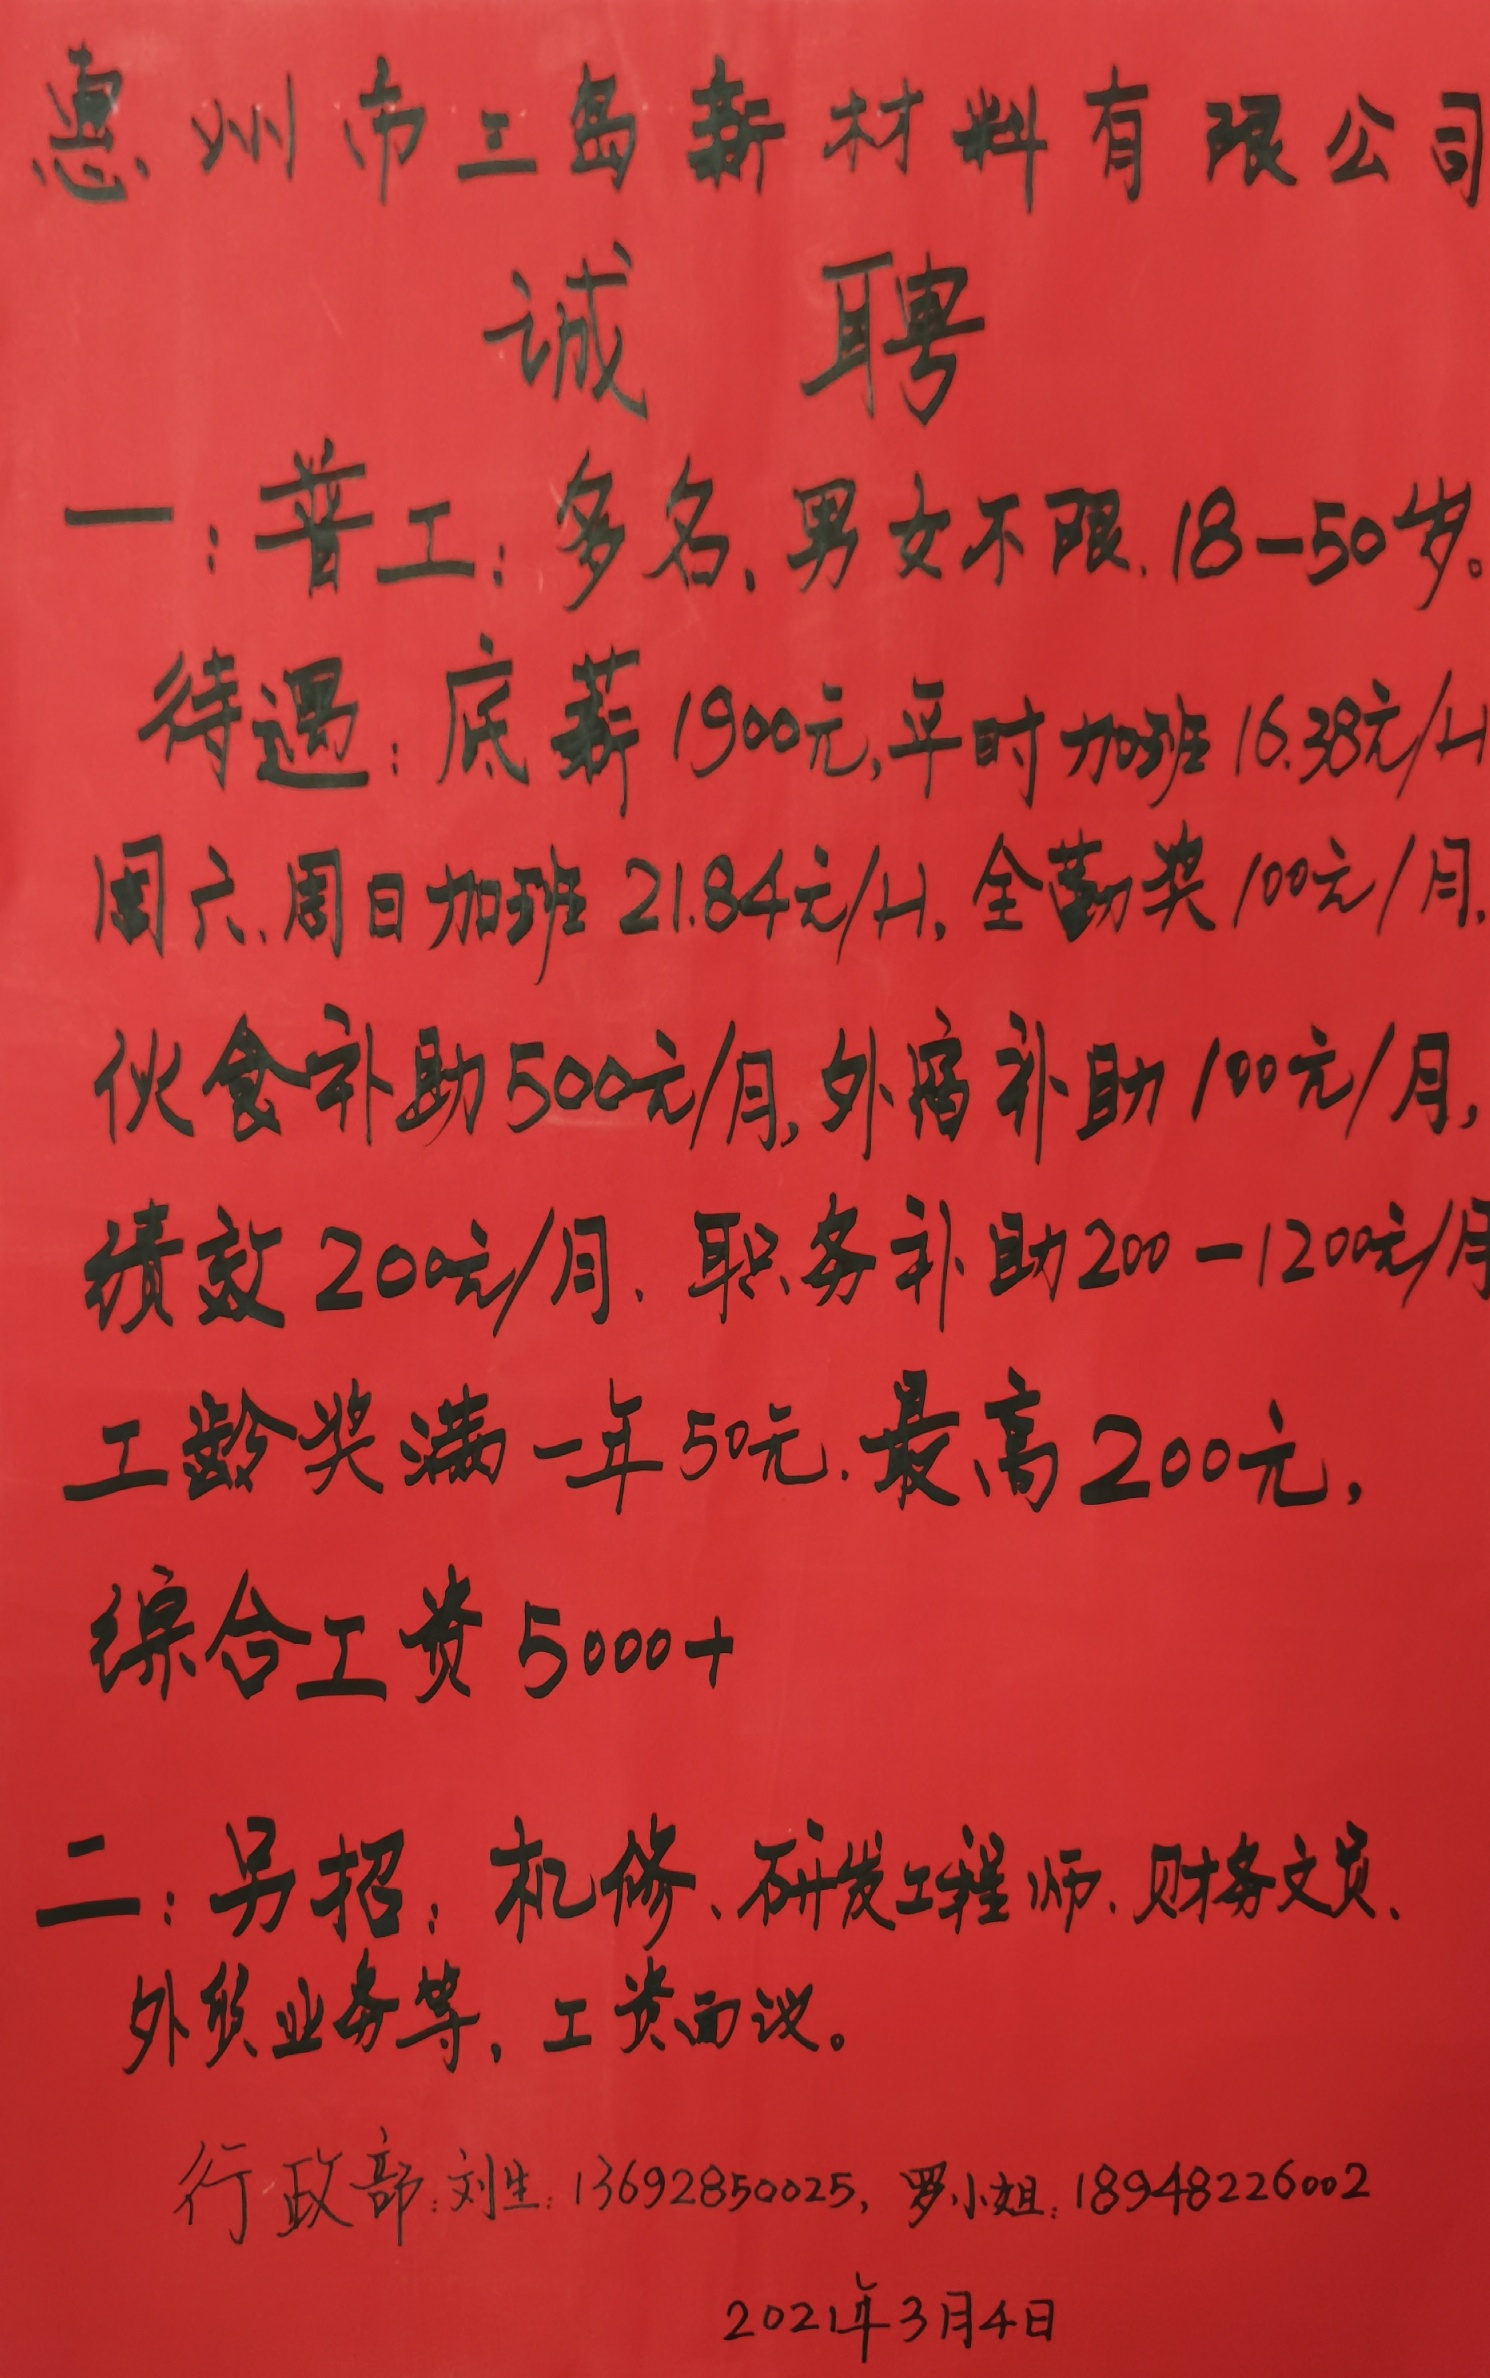 惠州市工岛新材料有限公司
诚聘
一:普工:多名、男女不限.18-50岁。
待遇:底薪1900元,平时加班16.38元/H
周六、周日加班21.84元/H,全勤奖100元/月.
伙食补助500元/月,外宿补助100元/月,
绩效200元/月、职务补助200-1200元/月
工龄奖满一年50元.最高200元,
综合工资5000+
二:另招:机修、研发工程师、财务文员、
外贸业务等,工资面议。
行政部:刘生:13692850025,罗小姐:18948226002
2021年3月4日